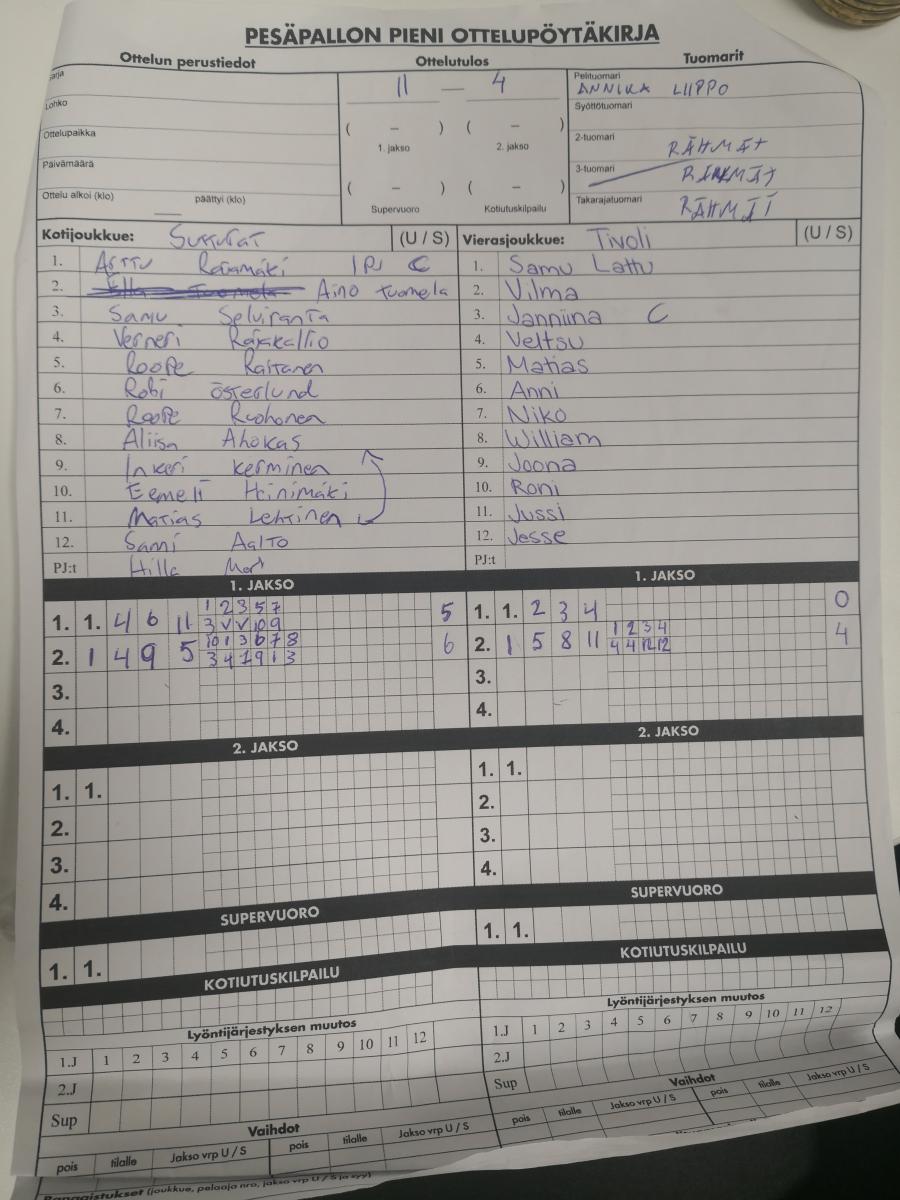 PESÄPALLON PIENI OTTELUPÖYTÄKIRJA
Ottelun perustiedot
Ottelutulos
Tuomarit
11 — 4
Pelituomari
ANNIKA LIIPPO
Lohko
Syöttötuomari
Ottelupaikka
( – ) ( – )
1. jakso 2. jakso
2-tuomari
RÄHMÄT
Päivämäärä
3-tuomari
RÄHMÄT
Ottelu alkoi (klo) päättyi (klo)
( – ) ( – )
Supervuoro Kotiutuskilpailu
Takarajatuomari
Kotijoukkue: (U / S)
Vierasjoukkue: Tivoli (U / S)
1. Arttu Rajamäki C
2. Aino Tuomela
3. Samu Selviranta
4. Verneri Rajakallio
5. Roope Raitanen
6. Robi Österlund
7. Roope Ruohonen
8. Aliisa Ahokas
9. Inkeri Kerminen
10. Eemeli Heinimäki
11. Matias Lehtinen
12. Sami Aalto
PJ:t Hilla
1. Samu Lattu
2. Vilma
3. Janniina C
4. Veltsu
5. Matias
6. Anni
7. Niko
8. William
9. Joona
10. Roni
11. Jussi
12. Jesse
PJ:t
1. JAKSO
1. 1. 4 6 11 1 2 3 5 7 5
3 V V 10 9
2. 1 4 9 5 10 1 3 6 7 8 6
3 4 1 9 1 3
3.
4.
1. JAKSO
1. 1. 2 3 4 0
2. 1 5 8 11 1 2 3 4 4
4 4 12 12
3.
4.
2. JAKSO
1. 1.
2.
3.
4.
2. JAKSO
1. 1.
2.
3.
4.
SUPERVUORO
1. 1.
SUPERVUORO
1. 1.
KOTIUTUSKILPAILU
KOTIUTUSKILPAILU
Lyöntijärjestyksen muutos
1.J 1 2 3 4 5 6 7 8 9 10 11 12
2.J
Sup
Lyöntijärjestyksen muutos
1.J 1 2 3 4 5 6 7 8 9 10 11 12
2.J
Sup
Vaihdot
pois tilalle Jakso vrp U / S pois tilalle Jakso vrp U / S
Vaihdot
pois tilalle Jakso vrp U / S pois tilalle Jakso vrp U / S
(joukkue, pelaaja nro, jakso vrp U / S ja syy)